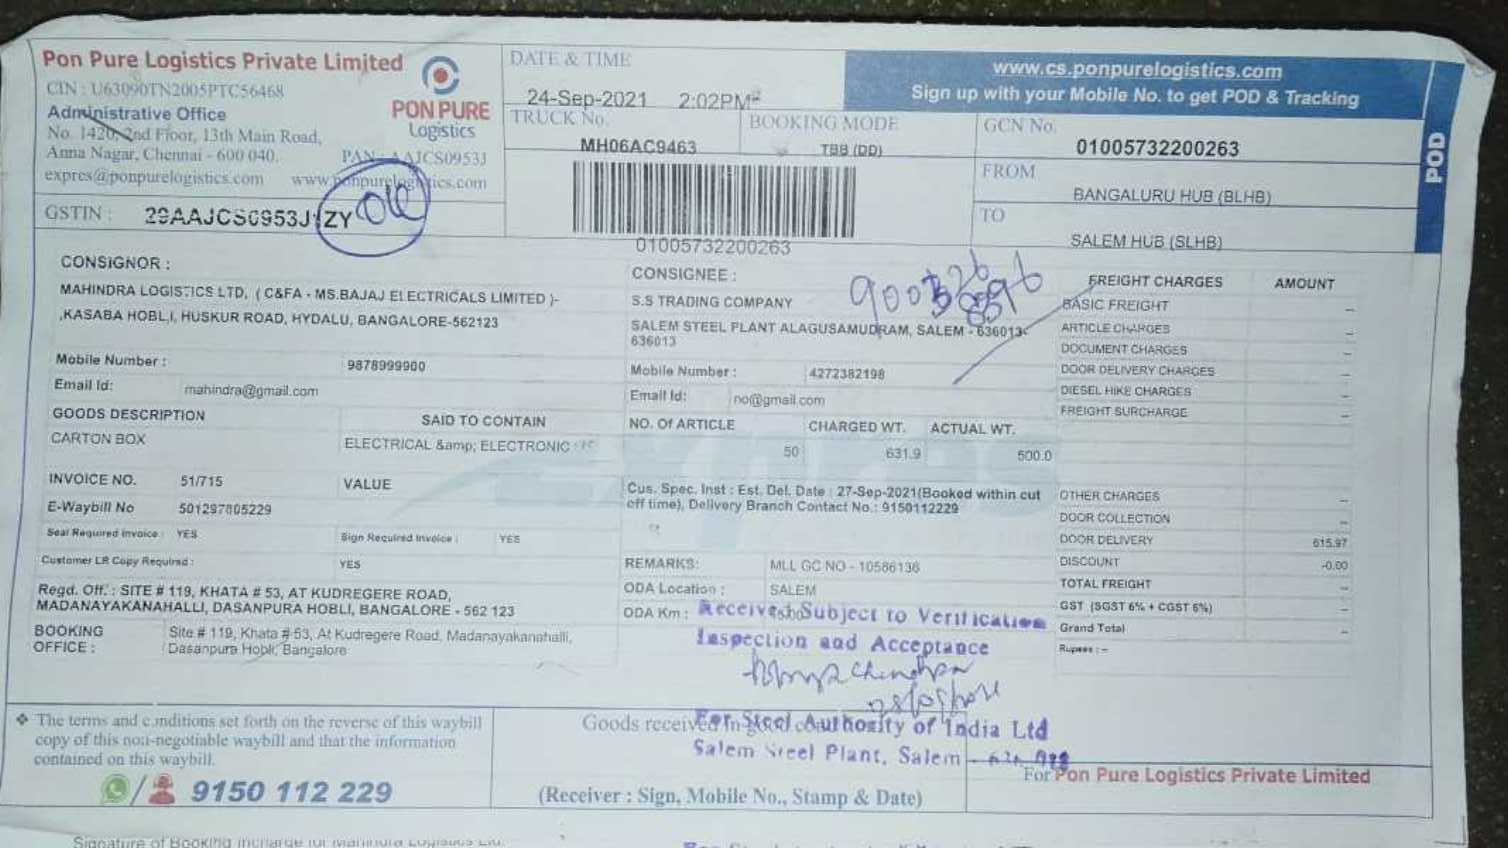 Pon Pure Logistics Private Limited
CIN : U63090TN2005PTC56468
Administrative Office
No. 1420, 2nd Floor, 13th Main Road,
Anna Nagar, Chennai - 600 040.
PAN : AAJCS0953J
expres@ponpurelogistics.com www.ponpurelogistics.com
PON PURE
Logistics
GSTIN : 29AAJCS0953J1ZY
DATE & TIME
24-Sep-2021 2:02PM
TRUCK No.
MH06AC9463
BOOKING MODE
TBB (DD)
01005732200263
www.cs.ponpurelogistics.com
Sign up with your Mobile No. to get POD & Tracking
POD
GCN No.
01005732200263
FROM
BANGALURU HUB (BLHB)
TO
SALEM HUB (SLHB)
CONSIGNOR :
MAHINDRA LOGISTICS LTD, ( C&FA - MS.BAJAJ ELECTRICALS LIMITED )-
,KASABA HOBL,I, HUSKUR ROAD, HYDALU, BANGALORE-562123
Mobile Number : 9878999900
Email Id: mahindra@gmail.com
GOODS DESCRIPTION SAID TO CONTAIN
CARTON BOX ELECTRICAL &amp; ELECTRONIC
INVOICE NO. 51/715 VALUE
E-Waybill No 501297805229
Seal Required Invoice : YES Sign Required Invoice : YES
Customer LR Copy Required : YES
Regd. Off.: SITE # 119, KHATA # 53, AT KUDREGERE ROAD,
MADANAYAKANAHALLI, DASANPURA HOBLI, BANGALORE - 562 123
BOOKING OFFICE :
Site # 119, Khata # 53, At Kudregere Road, Madanayakanahalli,
Dasanpura Hobli, Bangalore
CONSIGNEE :
S.S TRADING COMPANY
SALEM STEEL PLANT ALAGUSAMUDRAM, SALEM - 636013-
636013
Mobile Number : 4272382198
Email Id: no@gmail.com
NO. Of ARTICLE CHARGED WT. ACTUAL WT.
50 631.9 500.0
Cus. Spec. Inst : Est. Del. Date : 27-Sep-2021(Booked within cut
off time), Delivery Branch Contact No.: 9150112229
REMARKS: MLL GC NO - 10586136
ODA Location : SALEM
ODA Km :
Received Subject to Verification
Inspection and Acceptance
FREIGHT CHARGES AMOUNT
BASIC FREIGHT --
ARTICLE CHARGES --
DOCUMENT CHARGES --
DOOR DELIVERY CHARGES --
DIESEL HIKE CHARGES --
FREIGHT SURCHARGE --
OTHER CHARGES --
DOOR COLLECTION --
DOOR DELIVERY 615.97
DISCOUNT -0.00
TOTAL FREIGHT --
GST (SGST 6% + CGST 6%) --
Grand Total --
Rupees : --
❖ The terms and conditions set forth on the reverse of this waybill
copy of this non-negotiable waybill and that the information
contained on this waybill.
9150 112 229
Goods received in good
For Steel Authority of India Ltd
Salem Steel Plant, Salem
(Receiver : Sign, Mobile No., Stamp & Date)
For Pon Pure Logistics Private Limited
Signature of Booking Incharge for Mahindra Logistics Ltd.